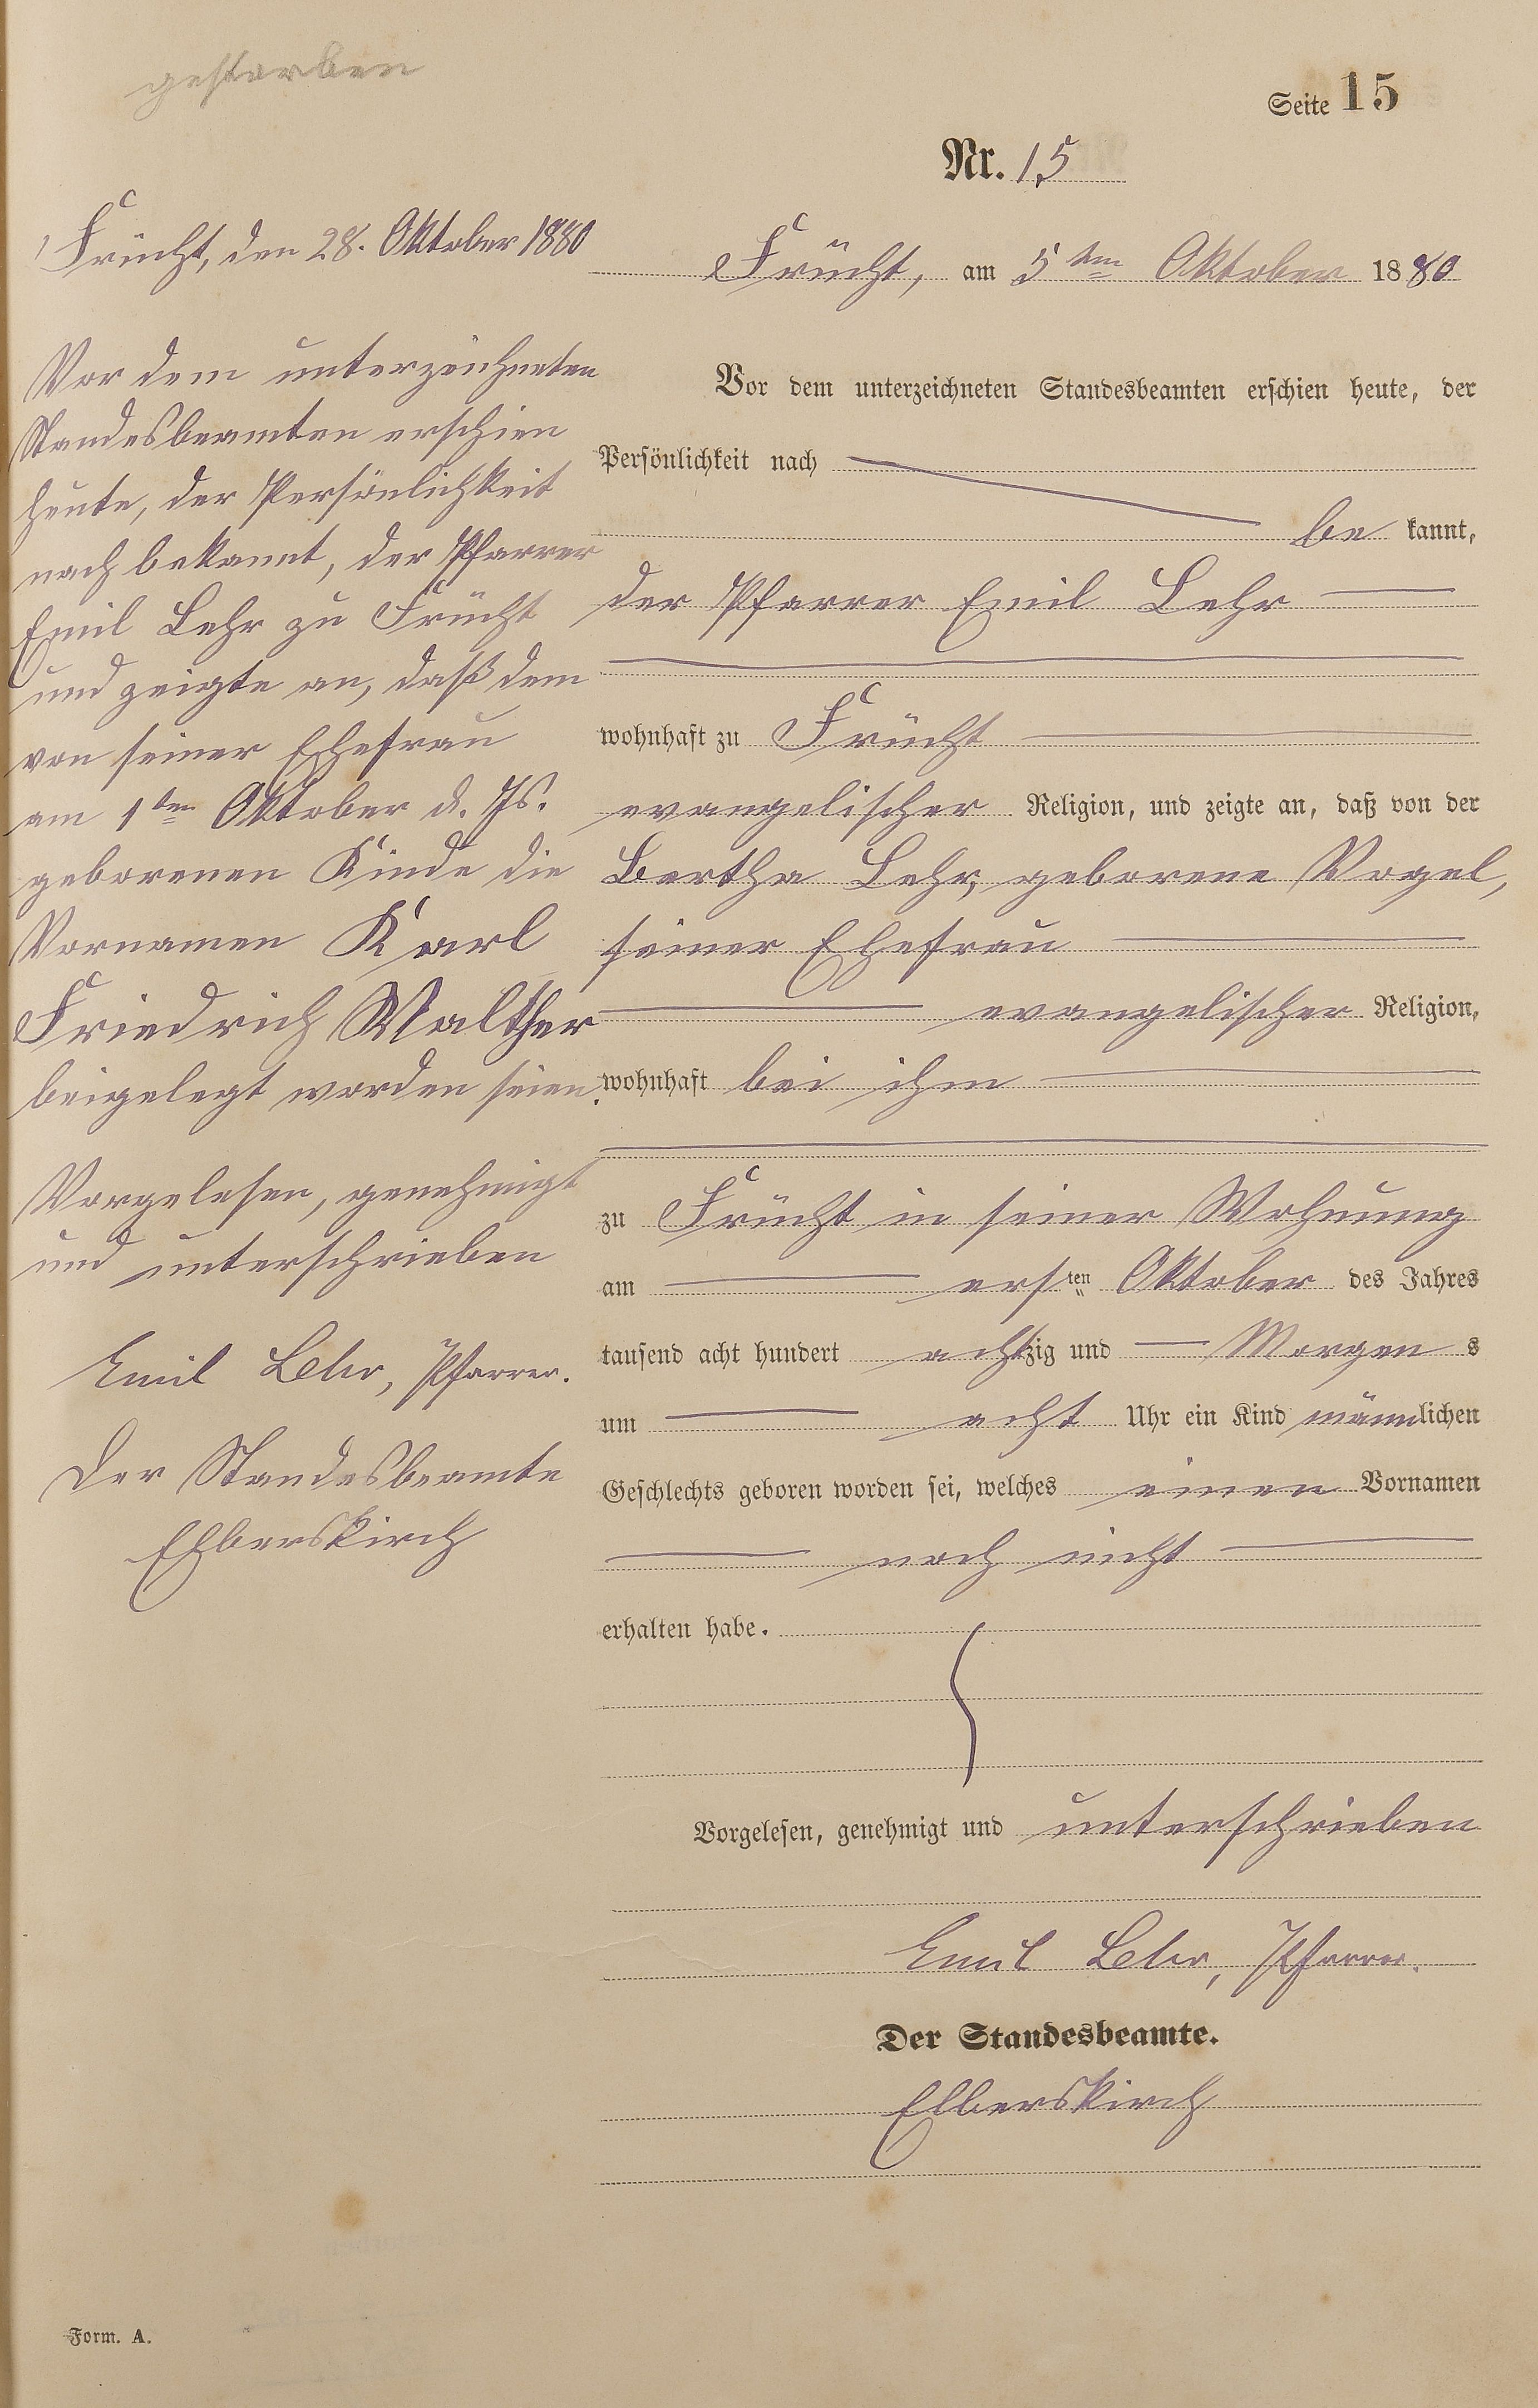 gestorben
Seite 15
Nr. 15
Frücht, den 28. Oktober 1880
Vor dem unterzeichneten
Standesbeamten erschien
heute, der Persönlichkeit
nach bekannt, der Pfarrer
Emil Lehr zu Frücht
und zeigte an, daß dem
von seiner Ehefrau
am 1ten Oktober d. Js.
geborenen Kinde die
Vornamen Karl
Friedrich Walther
beigelegt worden seien.
Vorgelesen, genehmigt
und unterschrieben
Emil Lehr, Pfarrer.
Der Standesbeamte
Elberskirch
Frücht, am 5ten Oktober 1880
Vor dem unterzeichneten Standesbeamten erschien heute, der
Persönlichkeit nach
be kannt,
der Pfarrer Emil Lehr
wohnhaft zu Frücht
evangelischer Religion, und zeigte an, daß von der
Bertha Lehr, geborene Vogel,
seiner Ehefrau
evangelischer Religion,
wohnhaft bei ihm
zu Frücht in seiner Wohnung
am ersten Oktober des Jahres
tausend acht hundert achtzig und Morgens
um acht Uhr ein Kind männlichen
Geschlechts geboren worden sei, welches einen Vornamen
noch nicht
erhalten habe.
Vorgelesen, genehmigt und unterschrieben
Emil Lehr, Pfarrer.
Der Standesbeamte.
Elberskirch
Form. A.